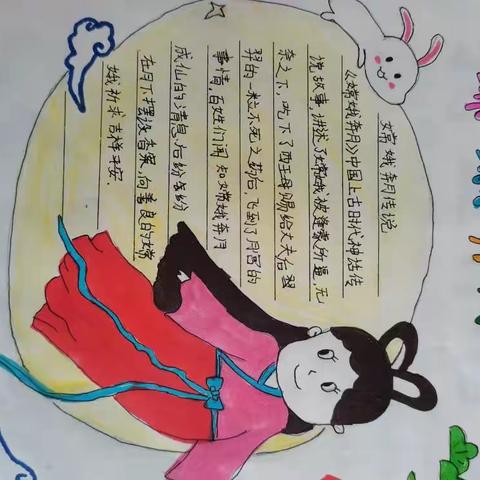 嫦娥奔月传说
《嫦娥奔月》中国上古时代神话传
说故事,讲述了嫦娥被逢蒙所逼,无
奈之下,吃下了西王母赐给丈夫后羿
羿的一粒不死之药后,飞到了月宫的
事情,百姓们闻知嫦娥奔月
成仙的消息后纷纷
在月下摆设香案,向善良的嫦
娥祈求吉祥平安.